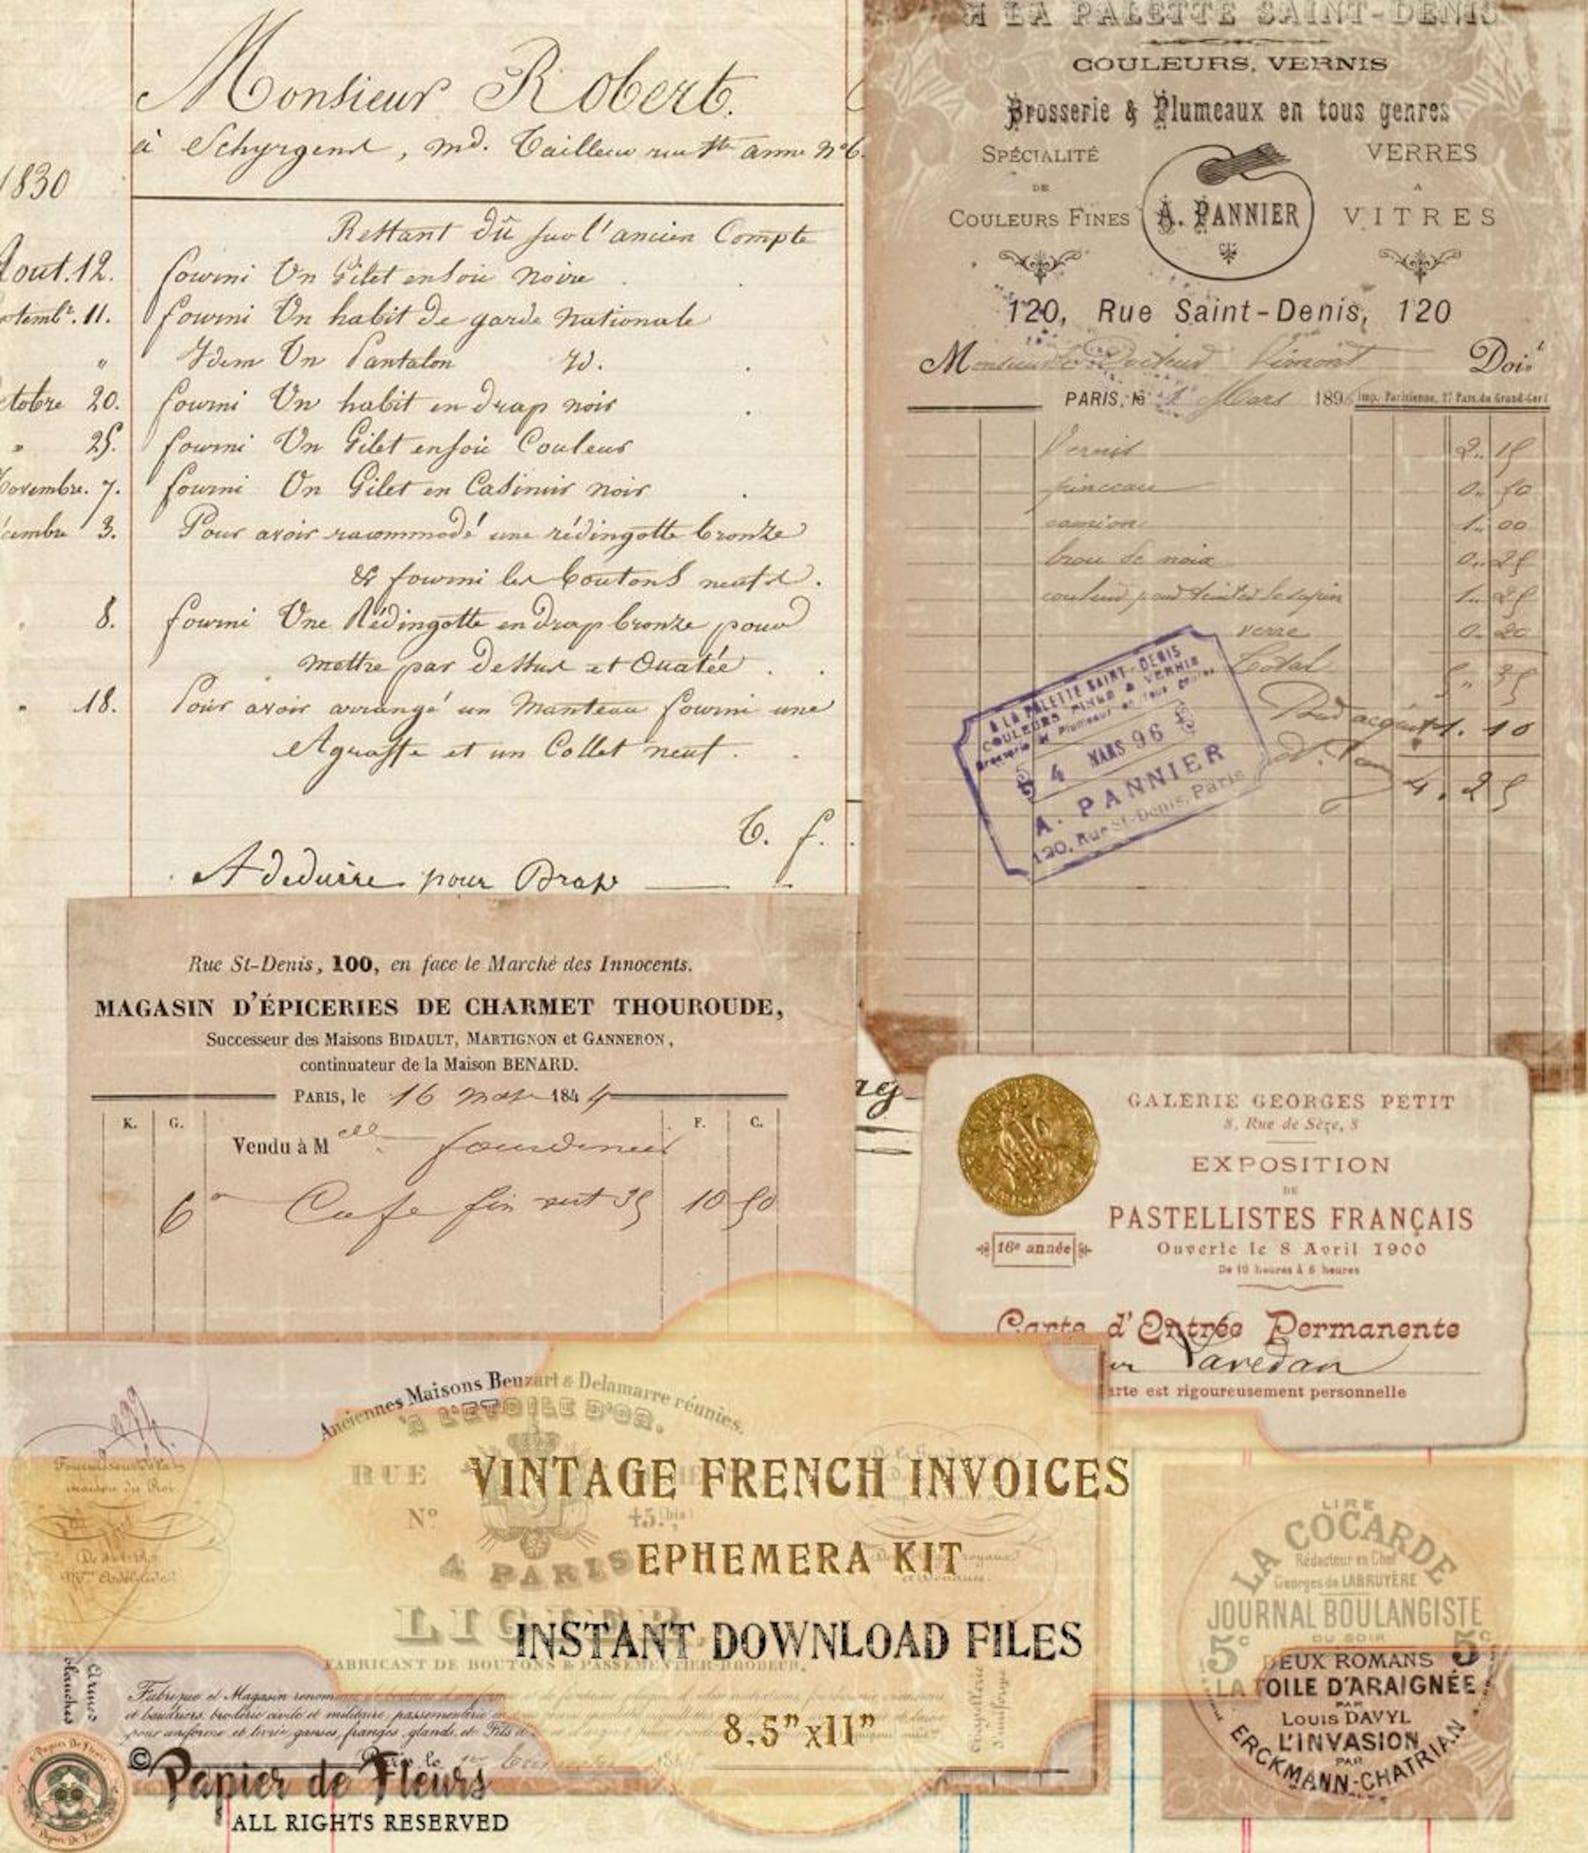 Monsieur Robert.
à Schyrgend, md. Tailleur rue Ste anne No 6.
1830
Restant dû sur l'ancien Compte
Aout. 12. fourni Un Gilet en soie noire
11. fourni Un habit De garde nationale
" Idem Un Pantalon
20. fourni Un habit en drap noir
" 25. fourni Un Gilet en soie Couleur
Novembre. 7. fourni Un Gilet en Casimir noir
3. Pour avoir racommodé une rédingotte bronze
& fourni les boutons neufs.
8. fourni Une Rédingotte en drap bronze pour
mettre par dessus et Ouatée.
" 18. Pour avoir arrangé un Manteau fourni une
Agraffe et un Collet neuf.
T. f.
A deduire pour Drap
A LA PALETTE SAINT-DENIS
COULEURS, VERNIS
Brosserie & Plumeaux en tous genres
SPÉCIALITÉ
DE
COULEURS FINES
A. PANNIER
VERRES
A
VITRES
120, Rue Saint-Denis, 120
Monsieur le Docteur Doit
PARIS, le Mars 1896 Imp. Parisienne,
Vernis 2.. 15
pinceau 0.. 50
camion 1.. 00
brou de noix 0.. 25
1.. 25
verre 0.. 20
Total 5.. 35
1. 10
4. 25
A LA PALETTE SAINT-DENIS
COULEURS FINES & VERNIS
Brosserie et Plumeaux en tous genres
4 MARS 96
A. PANNIER
120, Rue St-Denis, Paris
Rue St-Denis, 100, en face le Marché des Innocents.
MAGASIN D'ÉPICERIES DE CHARMET THOUROUDE,
Successeur des Maisons BIDAULT, MARTIGNON et GANNERON,
continuateur de la Maison BENARD.
PARIS, le 16 1844
K. G. F. C.
Vendu à M elle
6 Cafe fin vert 35 10 50
GALERIE GEORGES PETIT
8, Rue de Sèze, 8
EXPOSITION
DE
PASTELLISTES FRANÇAIS
16e année
Ouverte le 8 Avril 1900
De 10 heures à 6 heures
Carte d'Entrée Permanente
Lavedan
arte est rigoureusement personnelle
Anciennes Maisons Beuzart & Delamarre réunies.
A L'ETOILE D'OR.
RUE
No 45.(bis)
A PARIS
LIGIER
FABRICANT DE BOUTONS & PASSEMENTIER-BRODEUR.
VINTAGE FRENCH INVOICES
EPHEMERA KIT
INSTANT DOWNLOAD FILES
8.5"x11"
Fournisseur de la
maison du Roi
Fabrique et Magasin
et baudriers, broderie civile et militaire, passementerie
pour uniforme et livrée ganses, franges, glands, et
blanches
© Papier de Fleurs
ALL RIGHTS RESERVED
Papier De Fleurs
LIRE
LA COCARDE
Rédacteur en Chef
Georges de LABRUYÈRE
JOURNAL BOULANGISTE
5c DU SOIR 5c
DEUX ROMANS
LA TOILE D'ARAIGNÉE
PAR
LOUIS DAVYL
L'INVASION
PAR
ERCKMANN-CHATRIAN